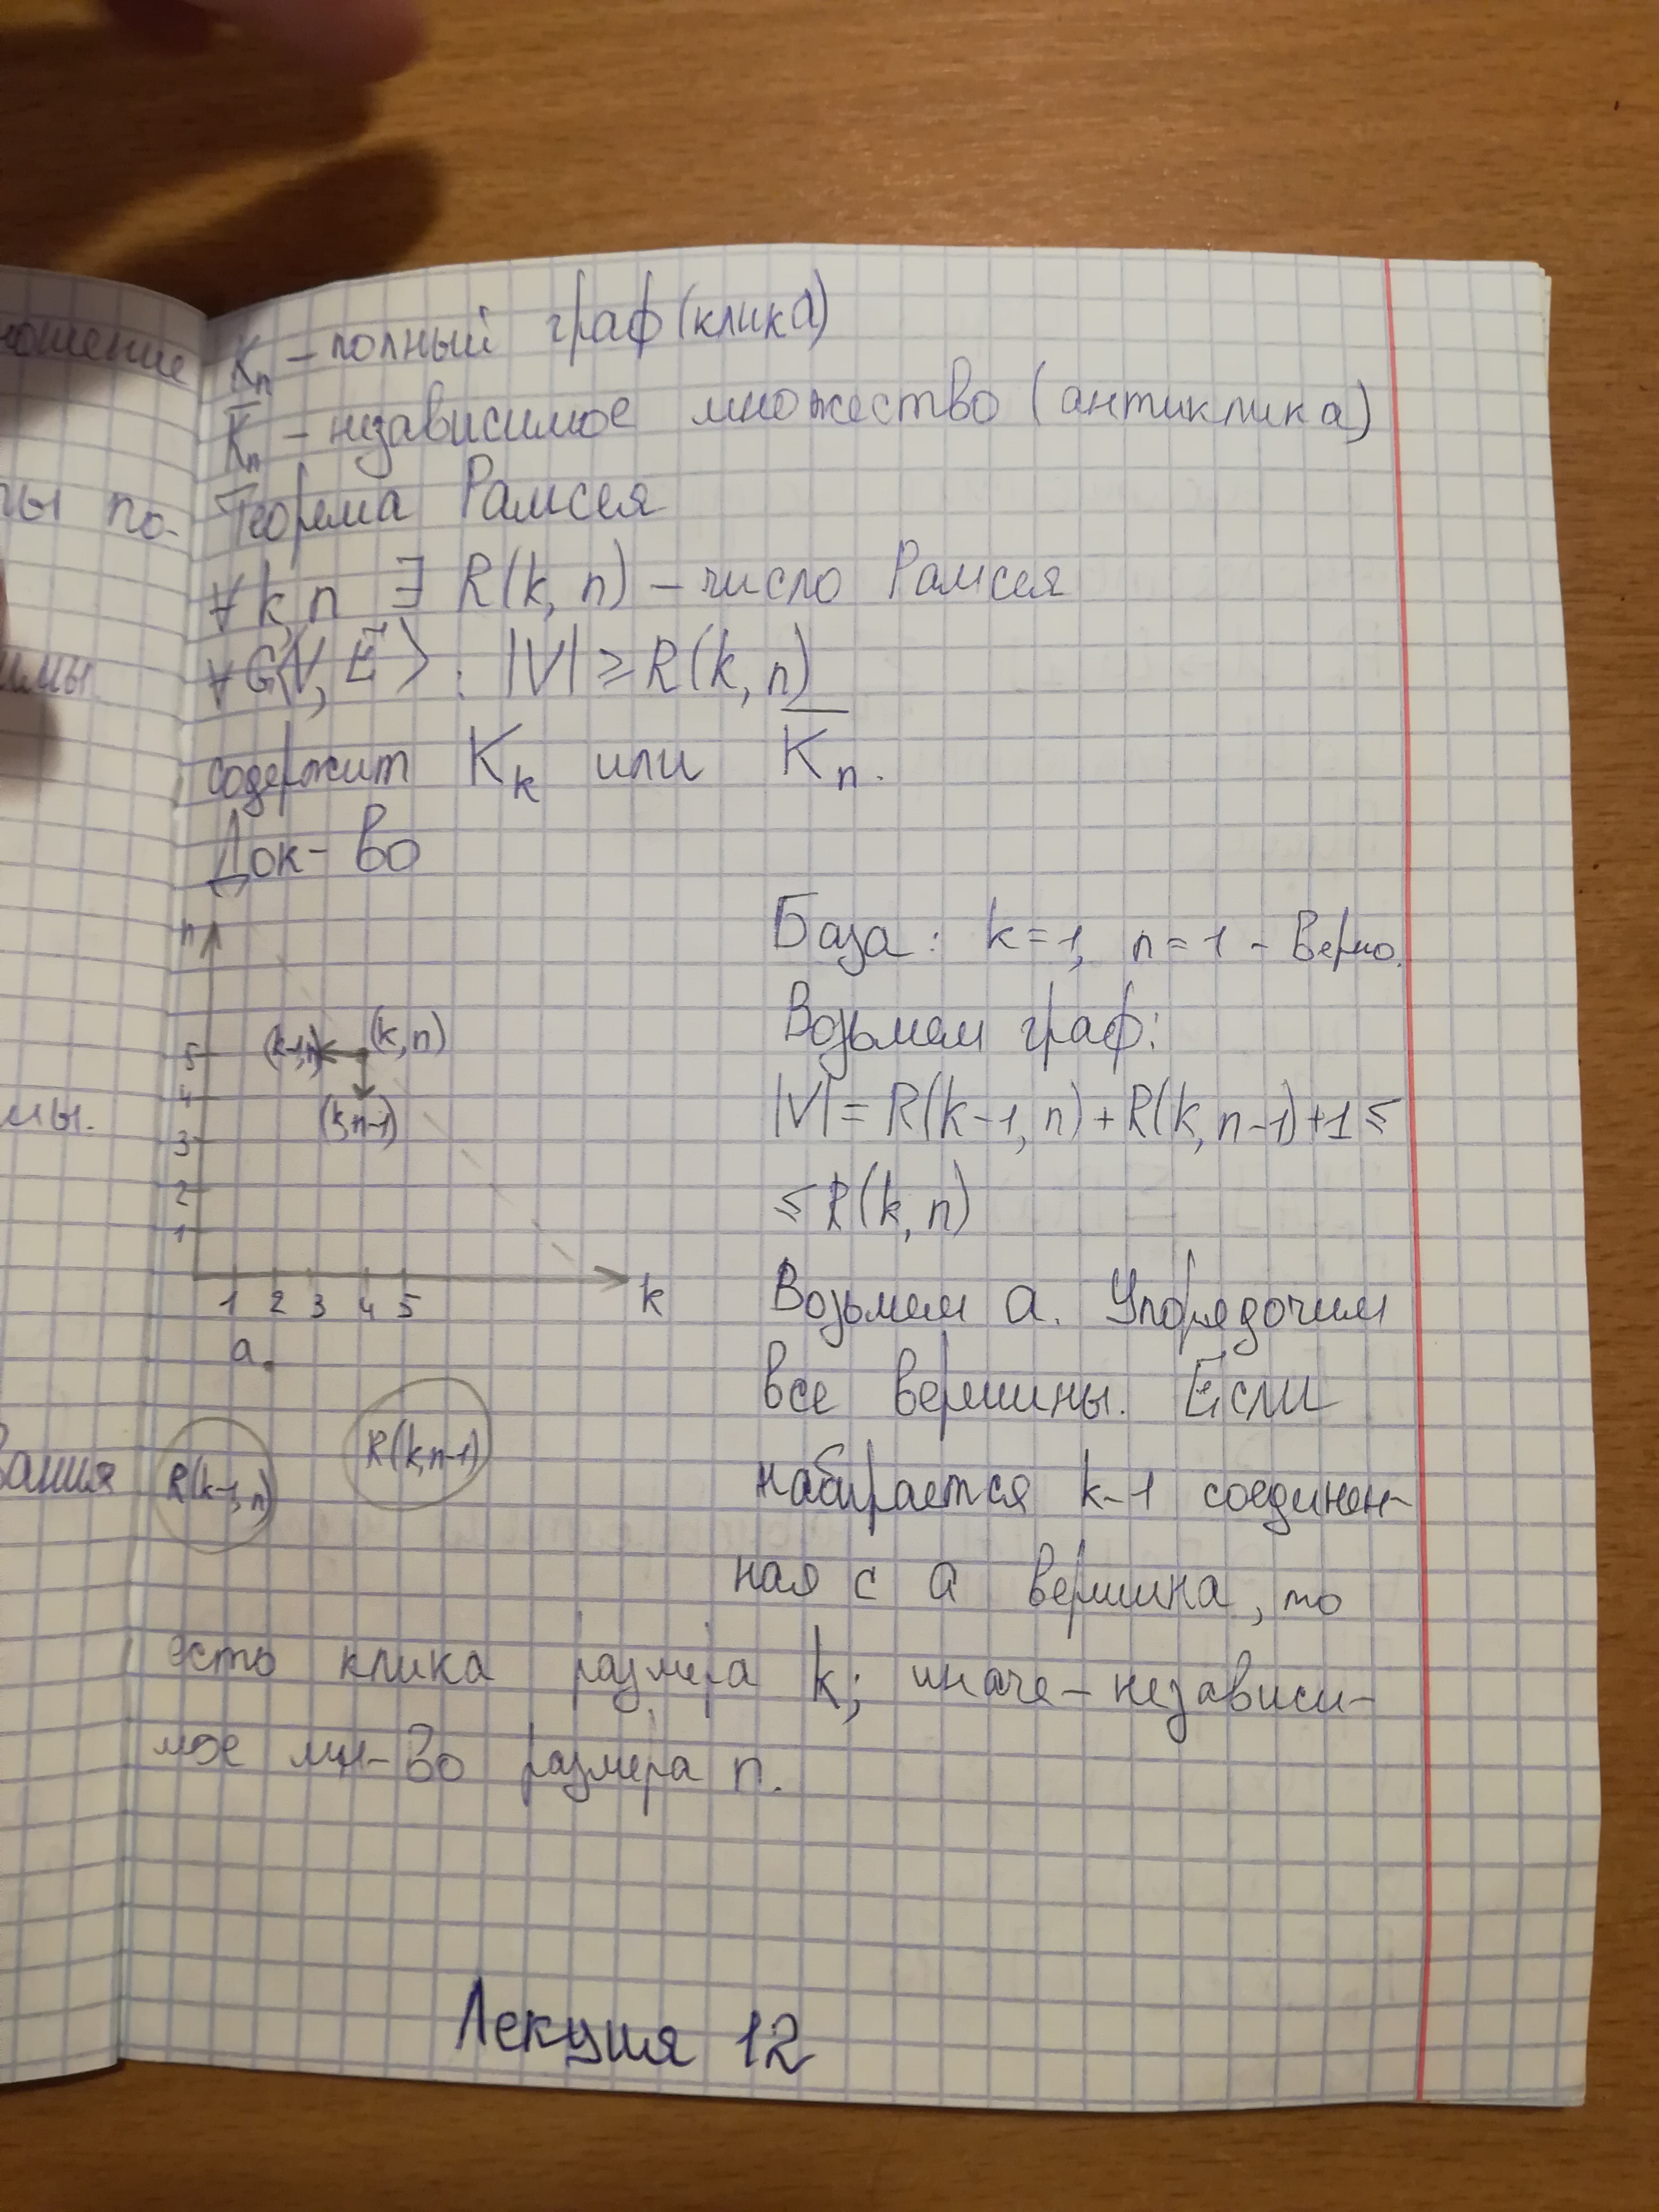 ношение
ны по-
имы.
мы.
вания
K_n – полный граф (клика)
K̅_n – независимое множество (антиклика)
Теорема Рамсея
∀ k, n ∃ R(k, n) – число Рамсея
∀ G⟨V, E⟩ : |V| ≥ R(k, n)
содержит K_k или K̅_n.
Док-во
n
5
4
3
2
1
(k-1, n)
(k, n)
(k, n-1)
1 2 3 4 5
k
a
R(k-1, n)
R(k, n-1)
База: k=1, n=1 – Верно.
Возьмем граф:
|V| = R(k-1, n) + R(k, n-1) + 1 ≤
≤ R(k, n)
Возьмем a. Упорядочим
все вершины. Если
набирается k-1 соединен-
ная с a вершина, то
есть клика размера k; иначе – независи-
мое мн-во размера n.
Лекция 12